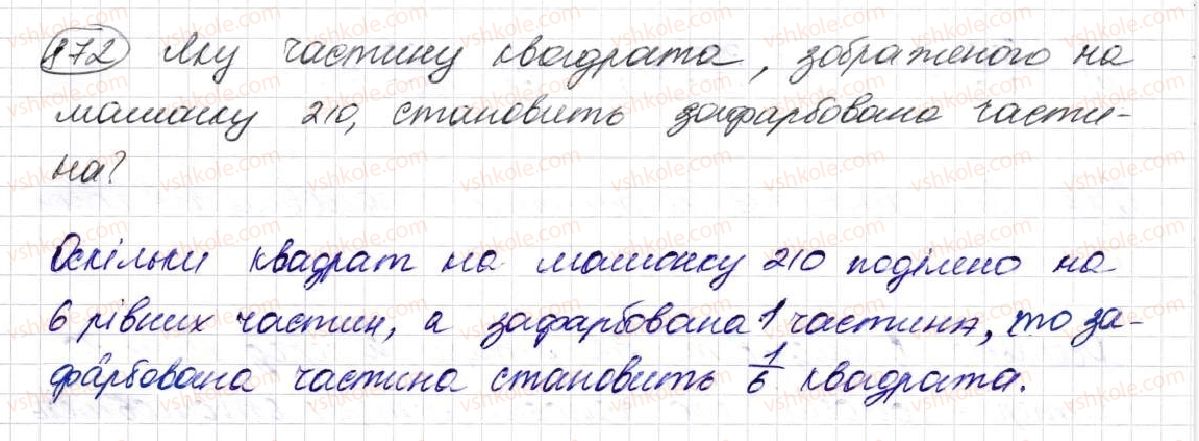 872 Яку частину квадрата, зображеного на
малюнку 210, становить зафарбована части-
на?
Оскільки квадрат на малюнку 210 поділено на
6 рівних частин, а зафарбована 1 частина, то за-
фарбована частина становить 1/6 квадрата.